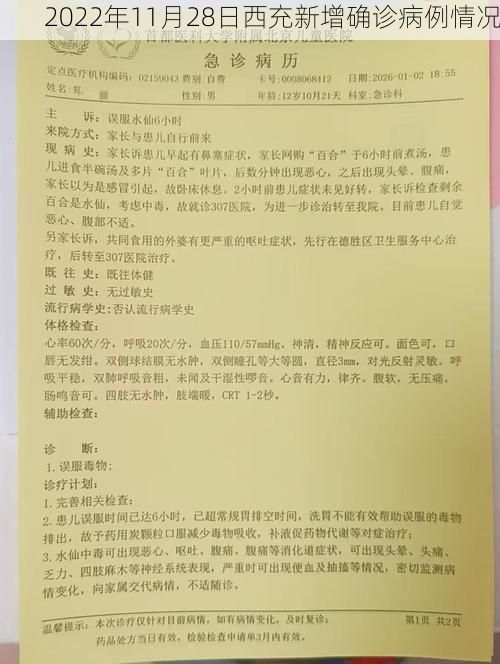 2022年11月28日西充新增确诊病例情况
首都医科大学附属北京儿童医院
急诊病历
定点医疗机构编码：02159043 费别：自费 卡号：0008068412 日期：2026-01-02 18:55
姓名：郑 性别：男 年龄：12岁10月21天 科室：急诊科
主 诉：误服水仙6小时
来院方式：家长与患儿自行前来
现 病 史：家长诉患儿早起有鼻塞症状，家长网购“百合”于6小时前煮汤，患
儿进食半碗汤及多片“百合”叶片，后数分钟出现恶心，之后出现头晕、腹痛，
家长以为是感冒引起，故卧床休息。2小时前患儿症状未见好转，家长诉检查剩余
百合是水仙，考虑中毒，故就诊307医院，为进一步诊治转至我院。目前患儿自觉
恶心、腹部不适。
另家长诉，共同食用的外婆有更严重的呕吐症状，先行在德胜区卫生服务中心治
疗，后转至307医院治疗。
既 往 史：既往体健
过 敏 史：无过敏史
流行病学史：否认流行病学史
体格检查：
心率60次/分，呼吸20次/分，血压110/57mmHg。神清，精神反应可。面色可。口
唇无发绀。双侧球结膜无水肿，双侧瞳孔等大等圆，直径3mm，对光反射灵敏。呼
吸平稳，双肺呼吸音粗，未闻及干湿性啰音。心音有力，律齐。腹软，无压痛，
肠鸣音可。四肢无水肿，肢端暖，CRT 1-2秒。
辅助检查：
诊 断：
1.误服毒物；
诊疗计划：
1.完善相关检查；
2.患儿误服时间已达6小时，已超常规胃排空时间，洗胃不能有效帮助误服的毒物
排出，故予药用炭颗粒口服减少毒物吸收，补液促药物代谢等对症治疗；
3.水仙中毒可出现恶心、呕吐、腹痛、腹痛等消化道症状，可出现头晕、头痛、
乏力、四肢麻木等神经系统表现，严重时可出现便血及抽搐等情况，密切监测病
情变化，向家属交代病情，不适随诊。
温馨提示：本次诊疗仅针对目前病情，如有病情变化，及时复诊； 第1页 共2页
药品处方当日有效，检验检查申请单3月内有效。